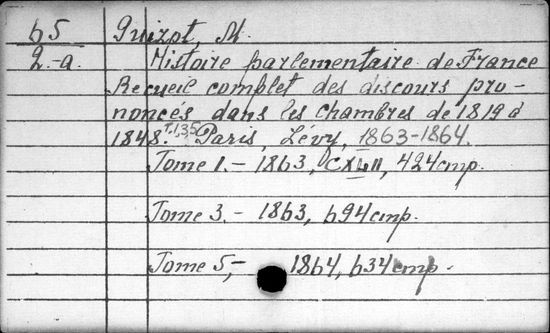 65 Guizot, M.
2.-a. Histoire parlementaire de France
Recueil complet des discours pro-
noncés dans les chambres de 1819 à
1848. T.1,3,5 Paris, Lévy, 1863-1864.
Tome 1.- 1863, CXLII, 424 стр.
Tome 3.- 1863, 694 стр.
Tome 5,- 1864, 634 стр.